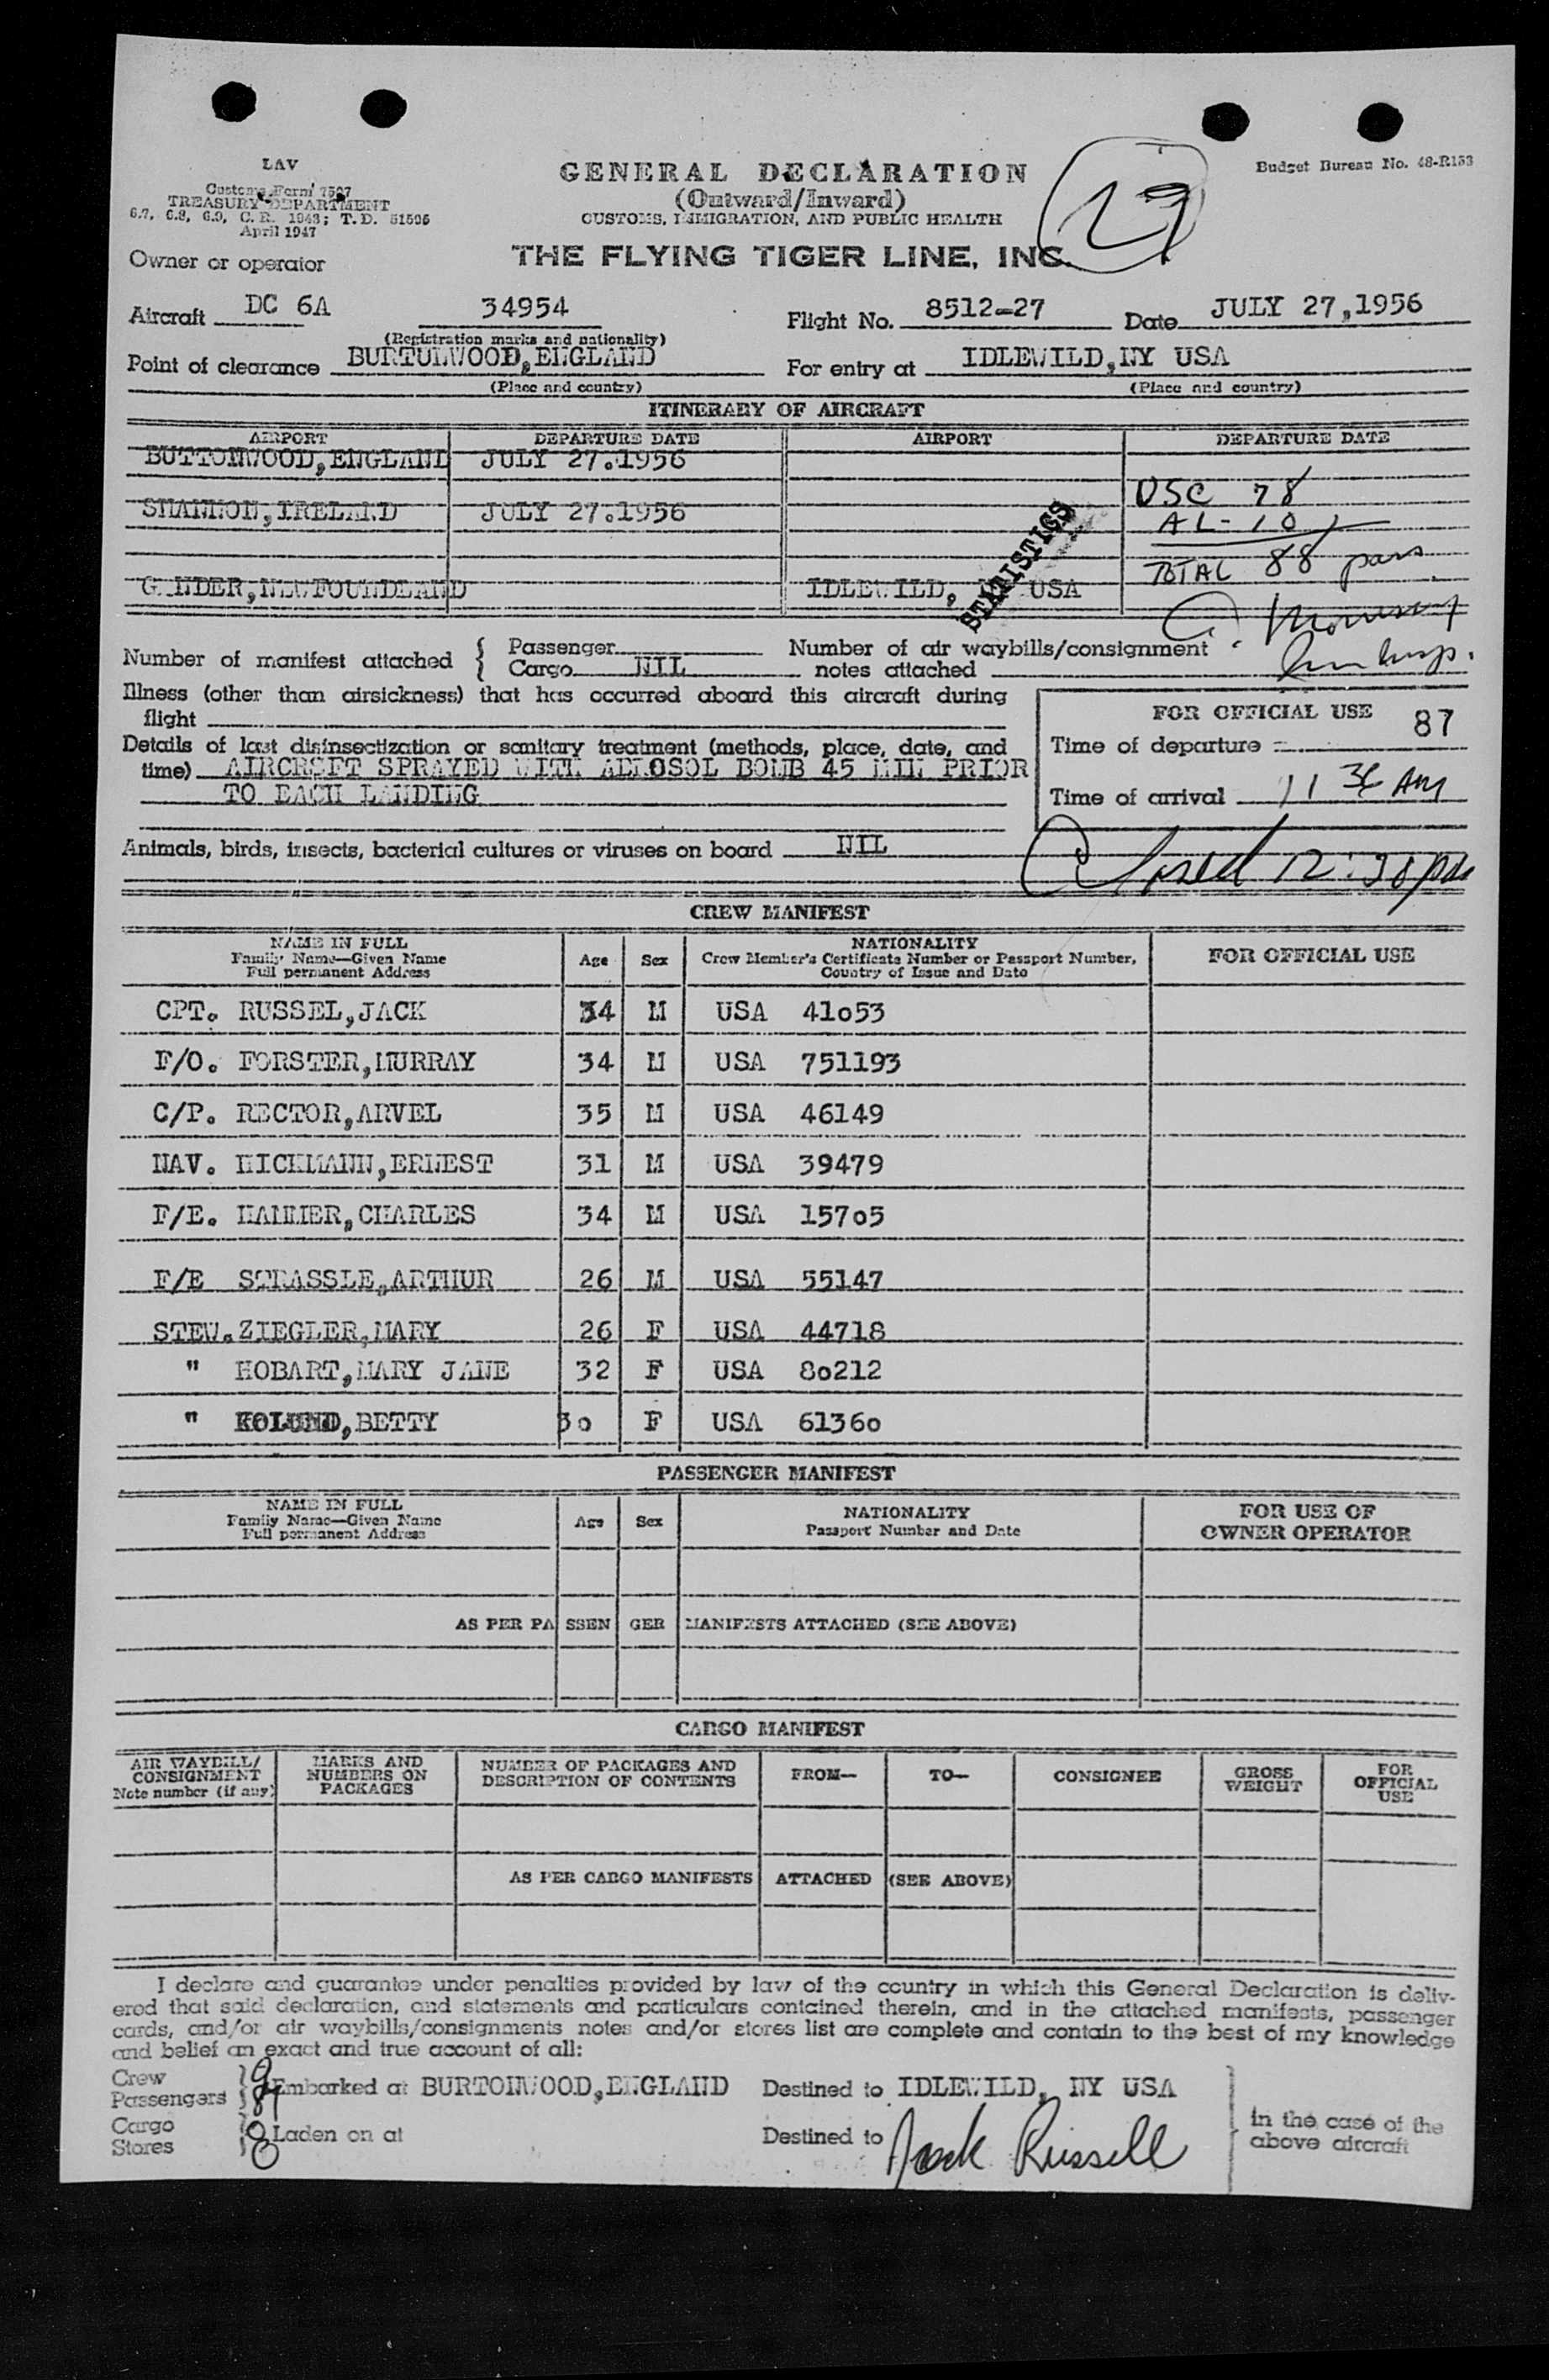 LAV
Customs Form 7507
TREASURY DEPARTMENT
6.7, 6.8, 6.9, C. R. 1943; T. D. 51505
April 1947
GENERAL DECLARATION
(Outward/Inward)
CUSTOMS, IMMIGRATION, AND PUBLIC HEALTH
Budget Bureau No. 48-R153
Owner or operator THE FLYING TIGER LINE, INC.
Aircraft DC 6A 34954 Flight No. 8512-27 Date JULY 27,1956
(Registration marks and nationality)
Point of clearance BURTONWOOD,ENGLAND For entry at IDLEWILD,NY USA
(Place and country) (Place and country)
ITINERARY OF AIRCRAFT
AIRPORT DEPARTURE DATE AIRPORT DEPARTURE DATE
BUTTONWOOD,ENGLAND JULY 27.1956
USC 78
SHANNON,IRELAND JULY 27.1956
AL- 10
TOTAL 88 pars
GANDER,NEWFOUNDLAND IDLEWILD, USA
STATISTICS
Number of manifest attached { Passenger Number of air waybills/consignment
Cargo NIL notes attached
Illness (other than airsickness) that has occurred aboard this aircraft during
flight
FOR OFFICIAL USE 87
Details of last disinsectization or sanitary treatment (methods, place, date, and
time) AIRCROFT SPRAYED WITH AEROSOL BOMB 45 MIN PRIOR
TO EACH LANDING
Time of departure
Time of arrival 11 36 AM
Animals, birds, insects, bacterial cultures or viruses on board NIL
Closed 12:30pm
CREW MANIFEST
NAME IN FULL
Family Name—Given Name
Full permanent Address
Age Sex
NATIONALITY
Crew Member's Certificate Number or Passport Number,
Country of Issue and Date
FOR OFFICIAL USE
CPT. RUSSEL,JACK 34 M USA 41053
F/O. FORSTER,MURRAY 34 M USA 751193
C/P. RECTOR,ARVEL 35 M USA 46149
NAV. HICKMANN,ERNEST 31 M USA 39479
F/E. HAMMER,CHARLES 34 M USA 15705
F/E STRASSLE,ARTHUR 26 M USA 55147
STEW. ZIEGLER,MARY 26 F USA 44718
" HOBART,MARY JANE 32 F USA 80212
" BETTY 30 F USA 61360
PASSENGER MANIFEST
NAME IN FULL
Family Name—Given Name
Full permanent Address
Age Sex
NATIONALITY
Passport Number and Date
FOR USE OF
OWNER OPERATOR
AS PER PASSENGER MANIFESTS ATTACHED (SEE ABOVE)
CARGO MANIFEST
AIR WAYBILL/
CONSIGNMENT
Note number (if any)
MARKS AND
NUMBERS ON
PACKAGES
NUMBER OF PACKAGES AND
DESCRIPTION OF CONTENTS
FROM— TO— CONSIGNEE
GROSS
WEIGHT
FOR
OFFICIAL
USE
AS PER CARGO MANIFESTS ATTACHED (SEE ABOVE)
I declare and guarantee under penalties provided by law of the country in which this General Declaration is deliv-
ered that said declaration, and statements and particulars contained therein, and in the attached manifests, passenger
cards, and/or air waybills/consignments notes and/or stores list are complete and contain to the best of my knowledge
and belief an exact and true account of all:
Crew 9
Passengers Embarked at BURTONWOOD,ENGLAND Destined to IDLEWILD, NY USA
Cargo
Stores Laden on at Destined to
in the case of the
above aircraft
Jack Russell